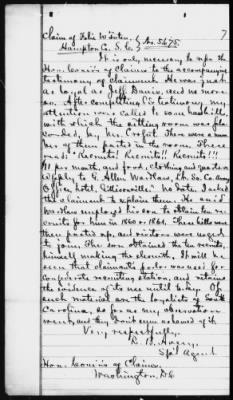 7
Claim of Felix W. 
Hampton Co. S.C. } No. 5675
It is only necessary to refer the
Hon. Com'rs of Claims to the accompanying
testimony of claimant. He was just
as loyal as Jeff Davis, and no more
so. After completing his testimony, my
attention was called to some handbills,
with which the sitting room was pla-
carded, by Mr. There were a num-
ber of them pasted in the room. These
read: "Recruits! Recruits!! Recruits!!!
$11 per month, and food, clothing and quarters
Apply to G. Allen Wardlaw, Lt. So. Ca. Army
Office, hotel, Gillisonville" No date. I asked
the claimant to explain them. He said
Wardlaw employed his son to obtain ten re-
cruits for him in 1860 or 1861. These bills were
then pasted up, and visitors were urged
to join. The son obtained the ten recruits,
himself making the eleventh. It will be
seen that claimant's parlor was used for
Confederate recruiting station, and retains
the evidence of its use until to-day. Of
such material are the loyalists of South
Carolina, so far as my observation
went, and they don't seem ashamed of it.
Very respectfully,
R. B. Avery,
Spc'l Agent
Hon. Com'rs of Claims,
Washington, D.C.